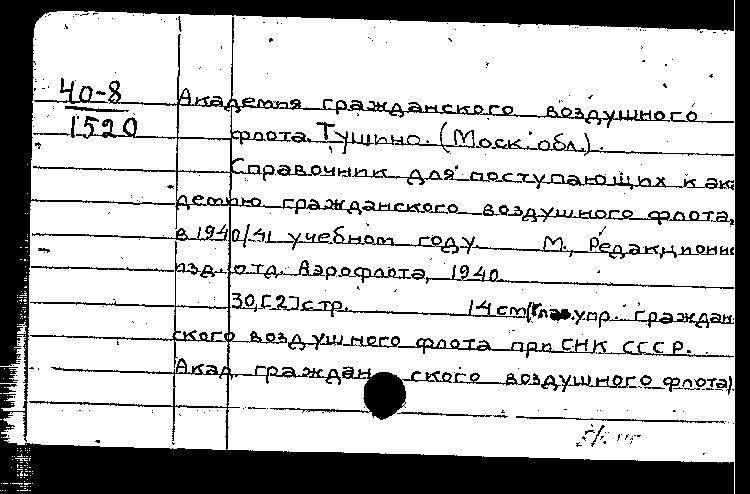 40-8
1520
Академия гражданского воздушного
флота. Тушино. (Моск. обл.).
Справочник для поступающих к ака
демию гражданского воздушного флота,
в 1940/41 учебном году. М., Редакционно
изд. отд. Аэрофлота, 1940.
30,[2]стр. 14 см (Глав.упр. граждан
ского воздушного флота при СНК СССР.
Акад. граждан ского воздушного флота)